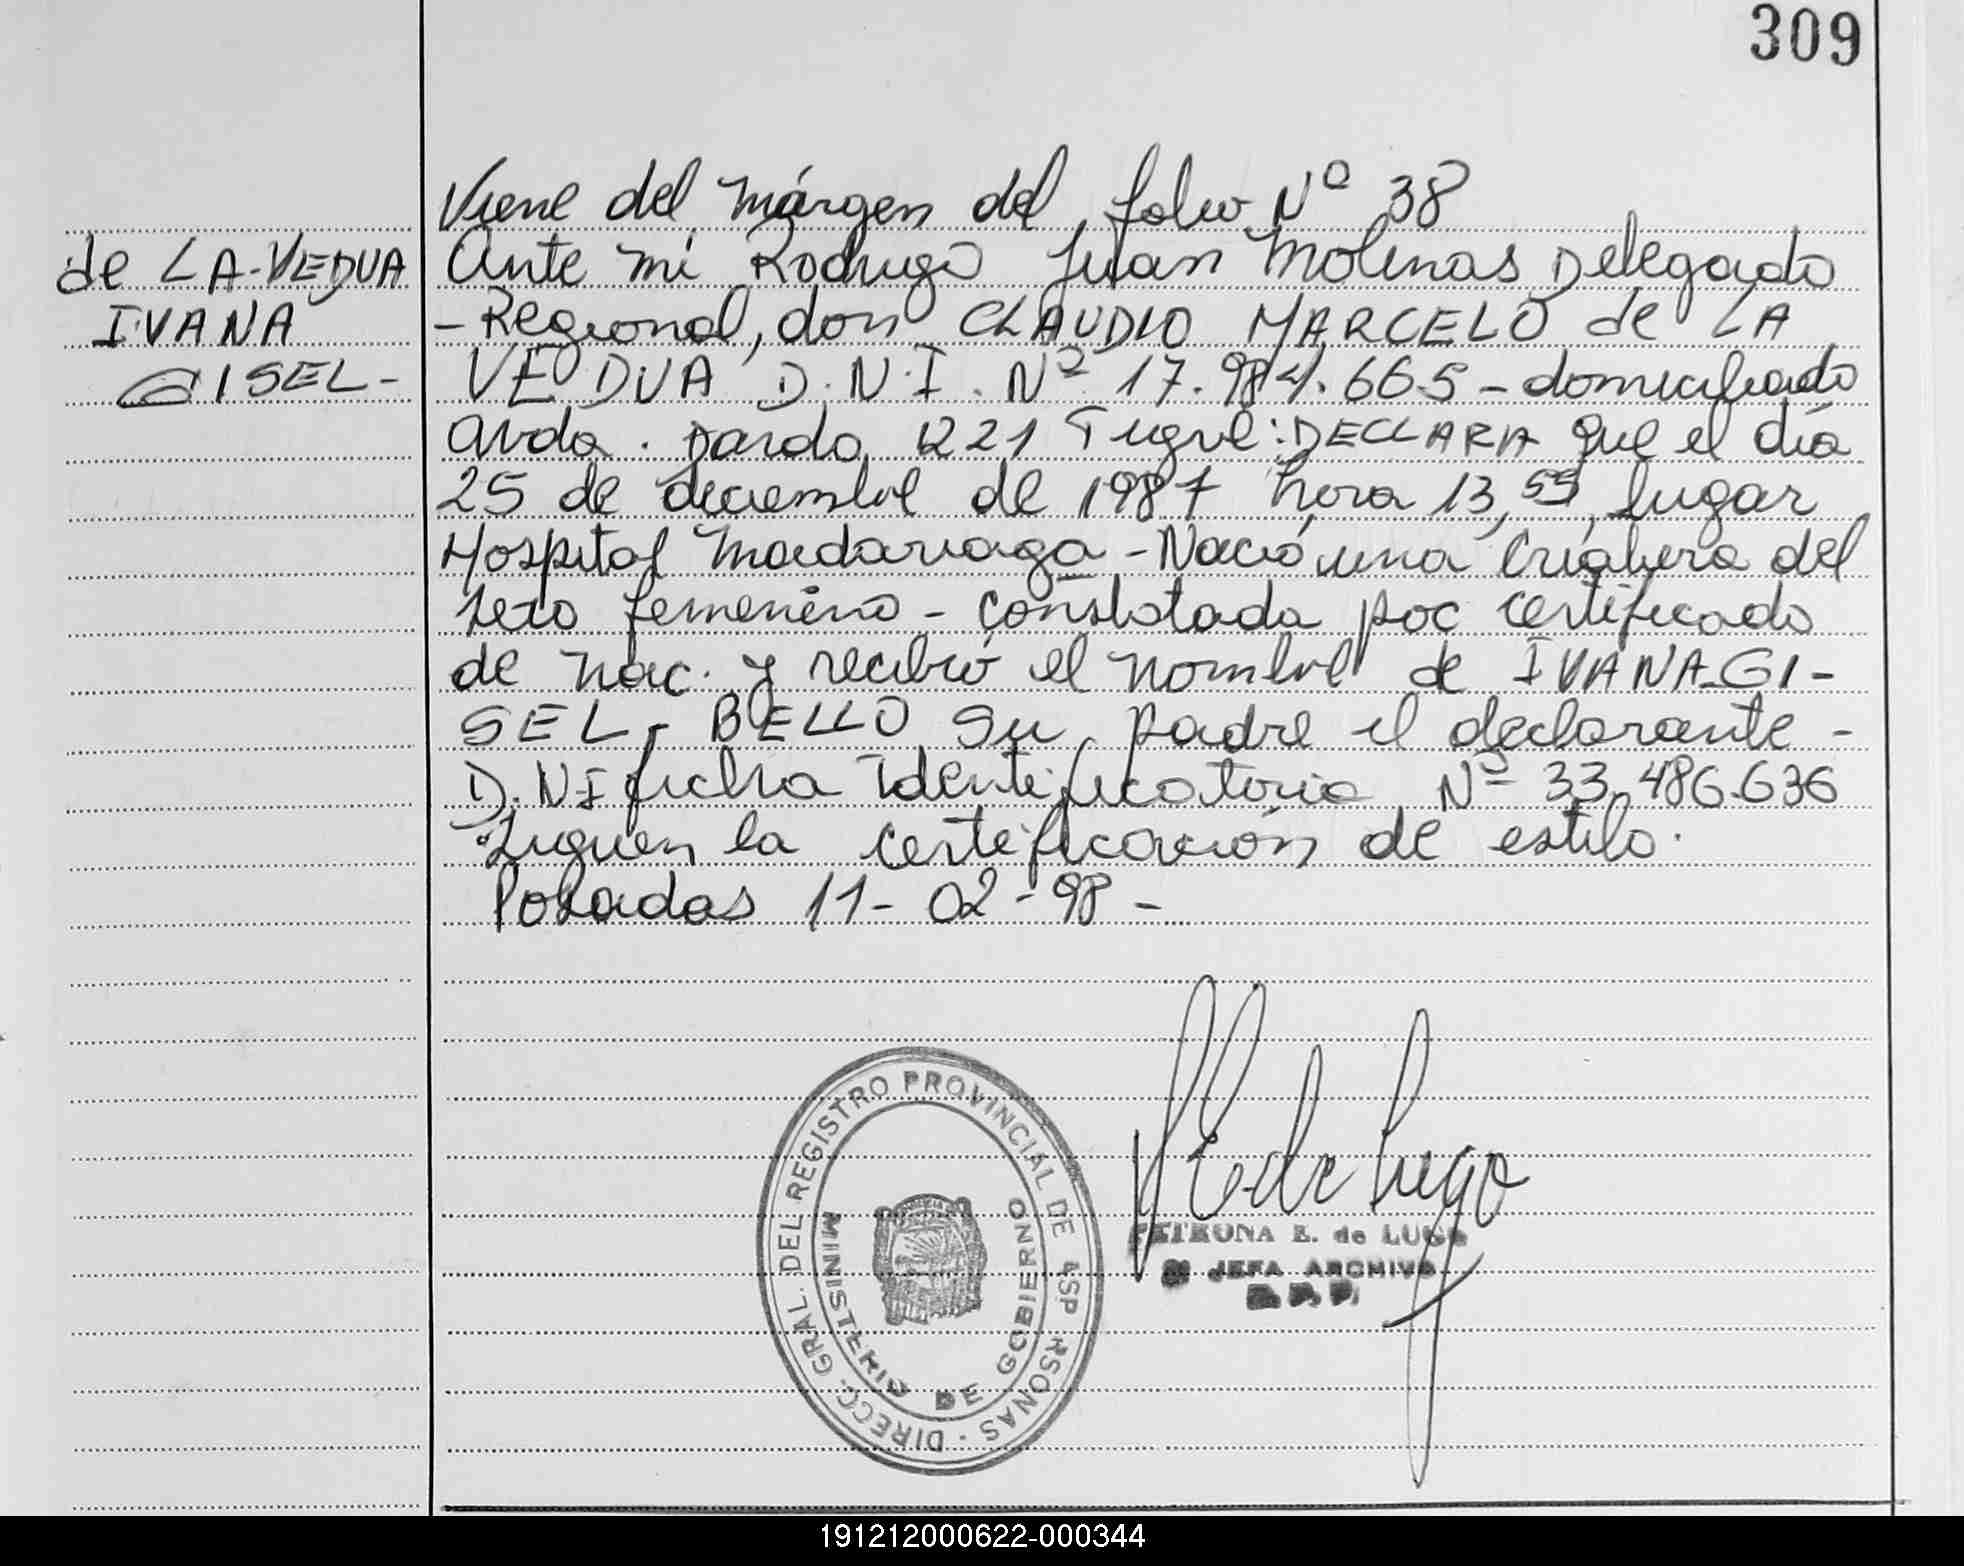 309
Viene del márgen del folio Nº 38
de LA-VEDUA
IVANA
GISEL-
Ante mi Rodrigo Juan Molinas Delegado
- Regional, don CLAUDIO MARCELO de LA
VEDUA D.N.I. Nº 17.984.665 - domiciliado
Avda. Pardo 1221 Tigre: DECLARA que el día
25 de diciembre de 1987 hora 13,55, lugar
Hospital Madariaga - Nació una criatura del
sexo femenino - constatada por certificado
de nac. y recibió el nombre de IVANA-GI-
SEL- BELLO Su padre el declarante -
D.N.I ficha identificatoria Nº 33.486.636
Siguen la certificación de estilo.
Posadas 11-02-98-
DIRECC. GRAL. DEL REGISTRO PROVINCIAL DE RSONAS
MINISTERIO DE GOBIERNO
PETRONA E. de LUGO
JEFA ARCHIVO
191212000622-000344